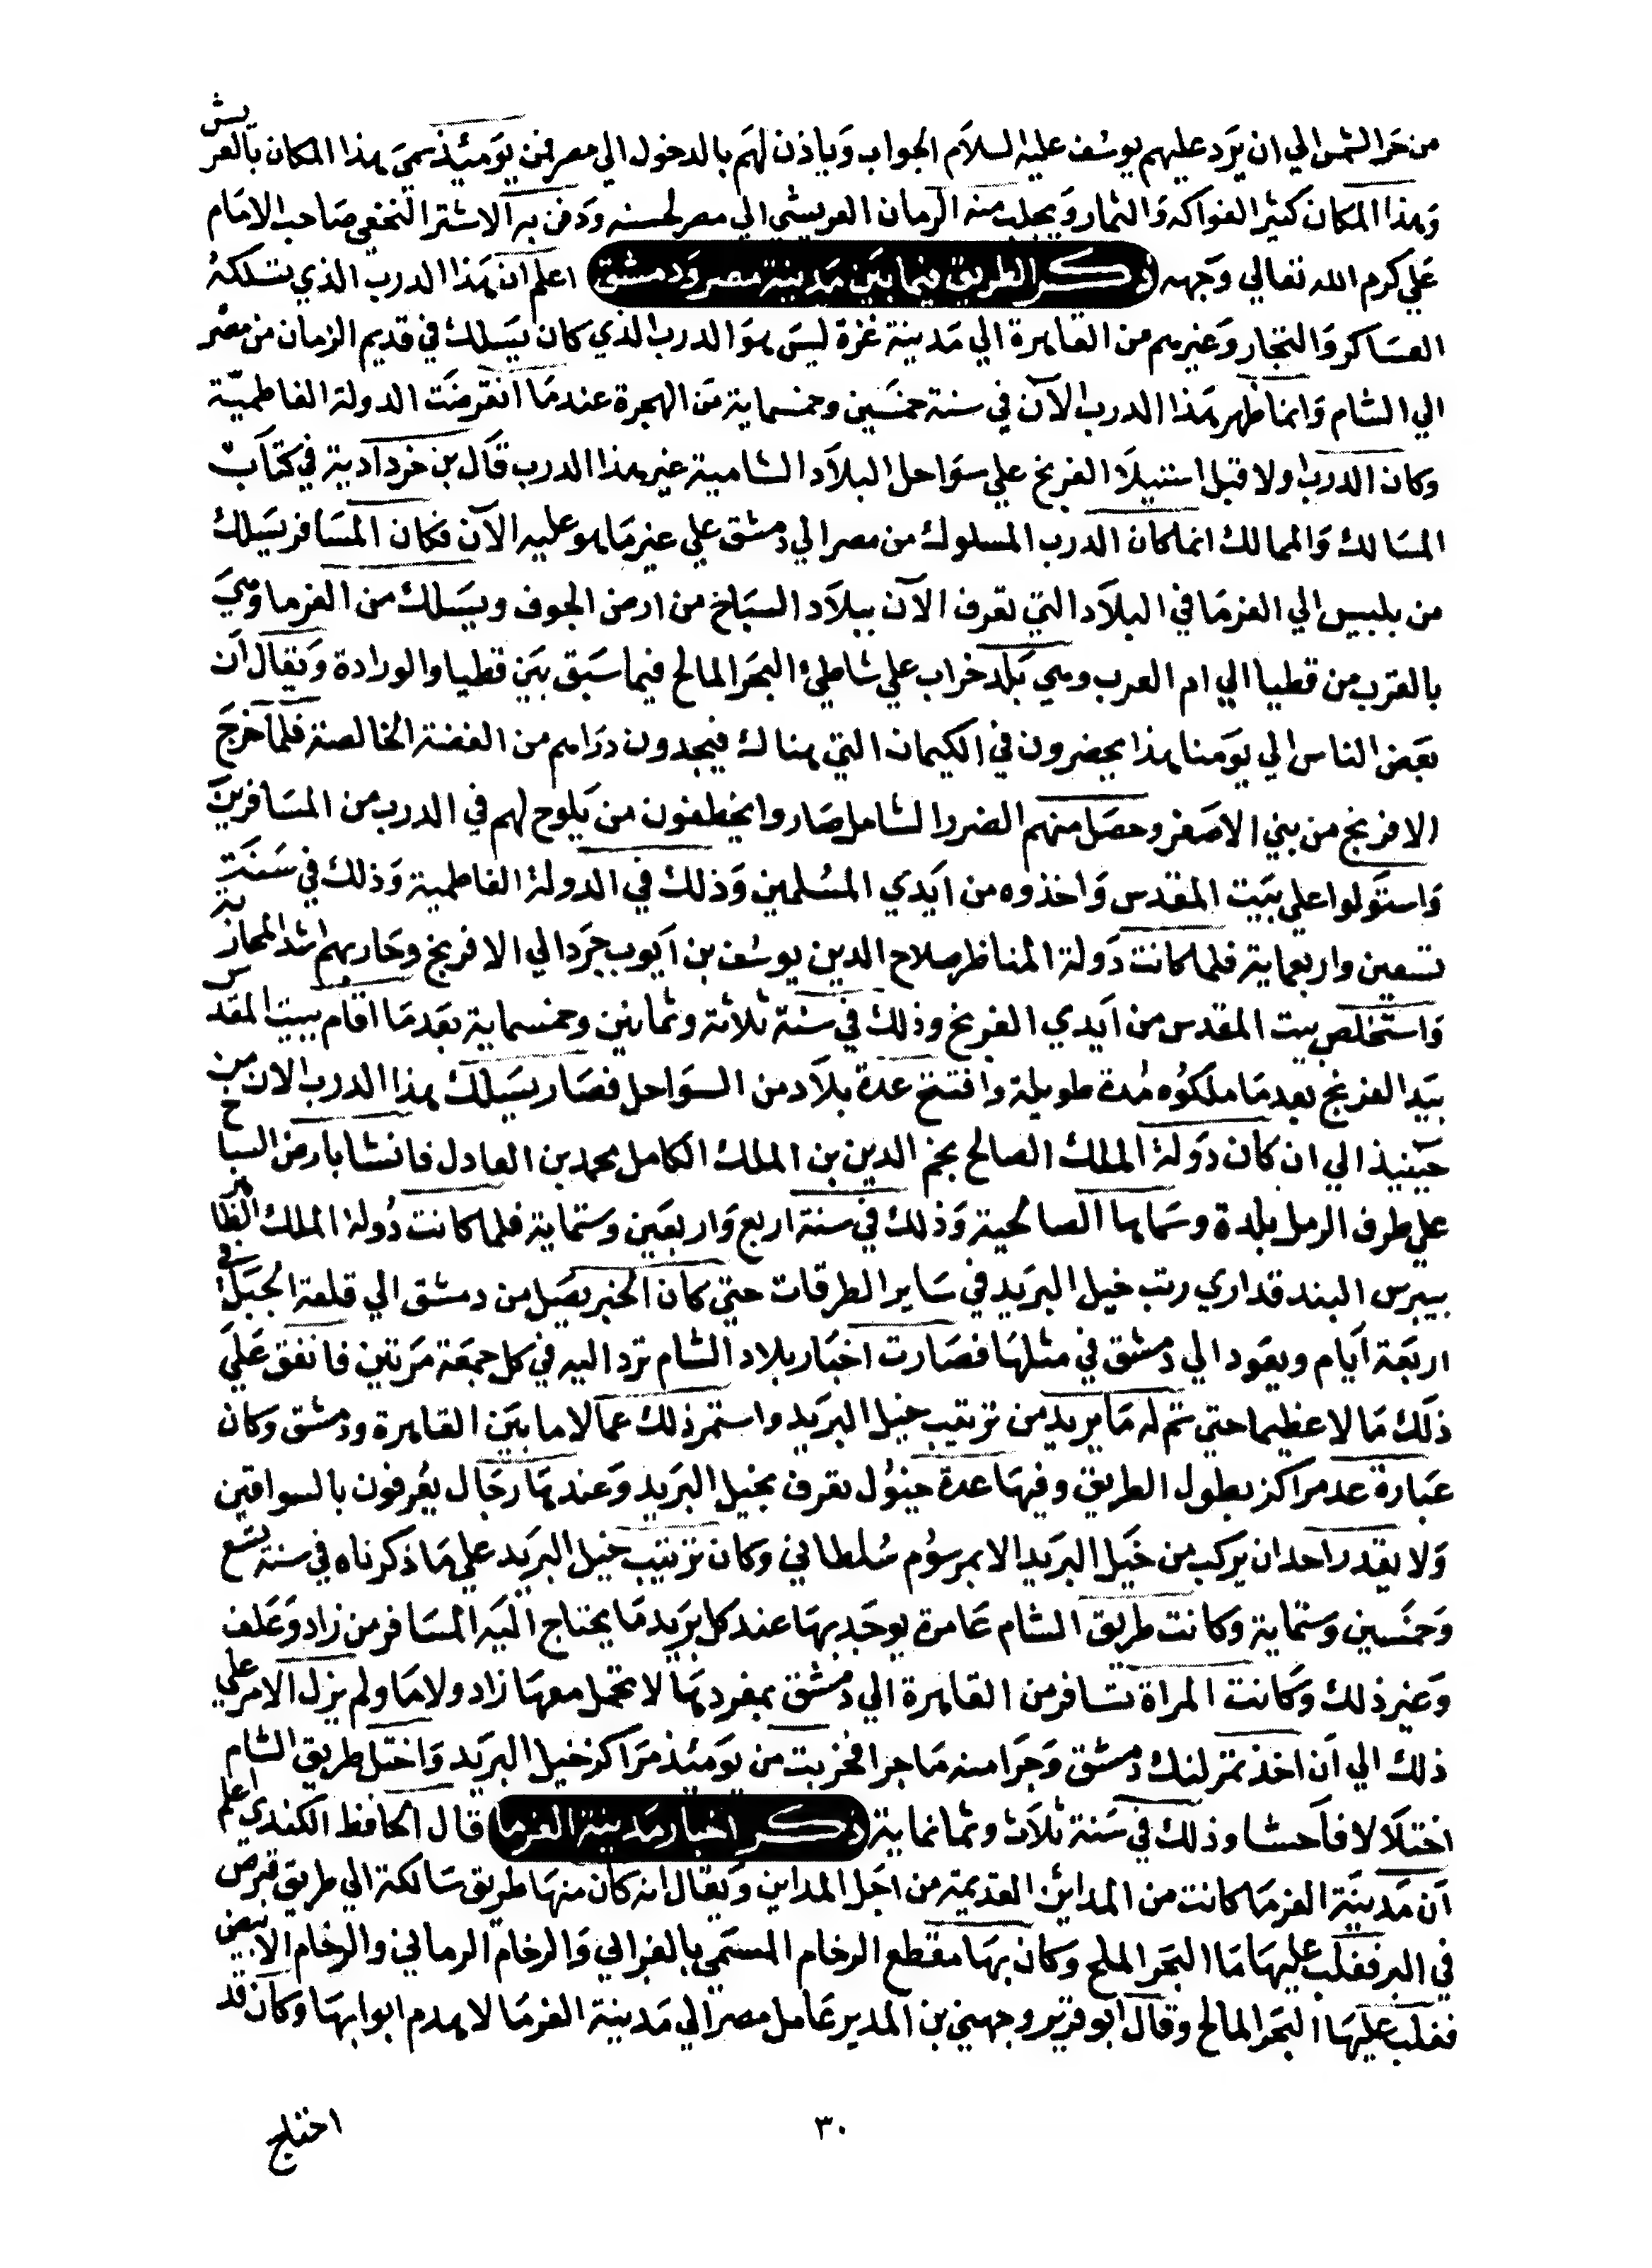 من حر الشمس الي ان يرد عليهم يوسف عليه السلام الجواب وياذن لهم بالدخول الي مصر فمن يومئذ سمي هذا المكان بالعريش
وهذا المكان كثير الفواكه والثمار ويجلب منه الرمان العريشي الي مصر لحسنه ودفن به الاشتر النخعي صاحب الامام
علي كرم الله تعالي وجهه ذكر الطريق فيما بين مدينة مصر ودمشق اعلم ان هذا الدرب الذي تسلكه
العساكر والتجار وغيرهم من القاهرة الي مدينة غزة ليس هو الدرب الذي كان يسلك في قديم الزمان من مصر
الي الشام وانما ظهر هذا الدرب الآن في سنة خمسين وخمسماية من الهجرة عندما انقرضت الدولة الفاطمية
وكان الدرب اولا قبل استيلا الفرنج علي سواحل البلاد الشامية غير هذا الدرب قال بن خردادبة في كتاب
المسالك والممالك انما كان الدرب المسلوك من مصر الي دمشق علي غير ما هو عليه الآن فكان المسافر يسلك
من بلبيس الي الفرما في البلاد التي تعرف الآن ببلاد السباخ من ارض الجوف ويسلك من الفرما وهي
بالقرب من قطيا الي ام العرب وهي بلد خراب علي شاطئ البحر المالح فيما سبق بين قطيا والورادة ويقال ان
بعض الناس الي يومنا هذا يحضرون في الكيمان التي هناك فيجدون دراهم من الفضة الخالصة فلما خرج
الافرنج من بني الاصفر وحصل منهم الضرر الشامل صاروا يخطفون من يلوح لهم في الدرب من المسافرين
واستولوا علي بيت المقدس واخذوه من ايدي المسلمين وذلك في الدولة الفاطمية وذلك في سنة
تسعين واربعماية فلما كانت دولة المناظر صلاح الدين يوسف بن ايوب جرد الي الافرنج وحاربهم اشد المحاربة
واستخلص بيت المقدس من ايدي الفرنج وذلك في سنة ثلاثة وثمانين وخمسماية بعد ما اقام بيت المقدس
بيد الفرنج بعد ما ملكوه مدة طويلة وافتتح عدة بلاد من السواحل فصار يسلك هذا الدرب الان من
حينيذ الي ان كان دولة الملك الصالح نجم الدين بن الملك الكامل محمد بن العادل فانشا بارض السباخ
علي طرف الرمل بلدة وسماها الصالحية وذلك في سنة اربع واربعين وستماية فلما كانت دولة الملك الظاهر
بيبرس البندقداري رتب خيل البريد في ساير الطرقات حتي كان الخبر يصل من دمشق الي قلعة الجبل في
اربعة ايام ويعود الي دمشق في مثلها فصارت اخبار بلاد الشام ترد اليه في كل جمعة مرتين فانفق علي
ذلك مالا عظيما حتي تم له ما يريد من ترتيب خيل البريد واستمر ذلك عمالا ما بين القاهرة ودمشق وكان
عبارة عد مراكز بطول الطريق وفيها عدة خيول تعرف بخيل البريد وعندها رجال يعرفون بالسواقين
ولا يقدر احد ان يركب من خيل البريد الا بمرسوم سلطاني وكان ترتيب خيل البريد علي ما ذكرناه في سنة تسع
وخمسين وستماية وكانت طريق الشام عامرة يوجد بها عند كل بريد ما يحتاج اليه المسافر من زاد وعلف
وغير ذلك وكانت المراة تسافر من القاهرة الي دمشق بمفردها لا تحمل معها زاد ولا ما ولم يزل الامر علي
ذلك الي ان اخذ تمرلنك دمشق وجرا منه ما جرا فخربت من يومئذ مراكز خيل البريد واختل طريق الشام
اختلالا فاحشا وذلك في سنة ثلاث وثمانماية ذكر اخبار مدينة الفرما قال الحافظ الكندي اعلم
ان مدينة الفرما كانت من المداين القديمة من اجل المداين ويقال انه كان منها طريق سالكة الي طريق قبرص
في البر فغلب عليها ما البحر الملح وكان بها مقطع الرخام المسمي بالغرابي والرخام الرماني والرخام الابيض
فغلب عليها البحر المالح وقال ابو قرير وجهني بن المدير عامل مصر الي مدينة الفرما لا هدم ابوابها وكان قد
٣٠
احتاج